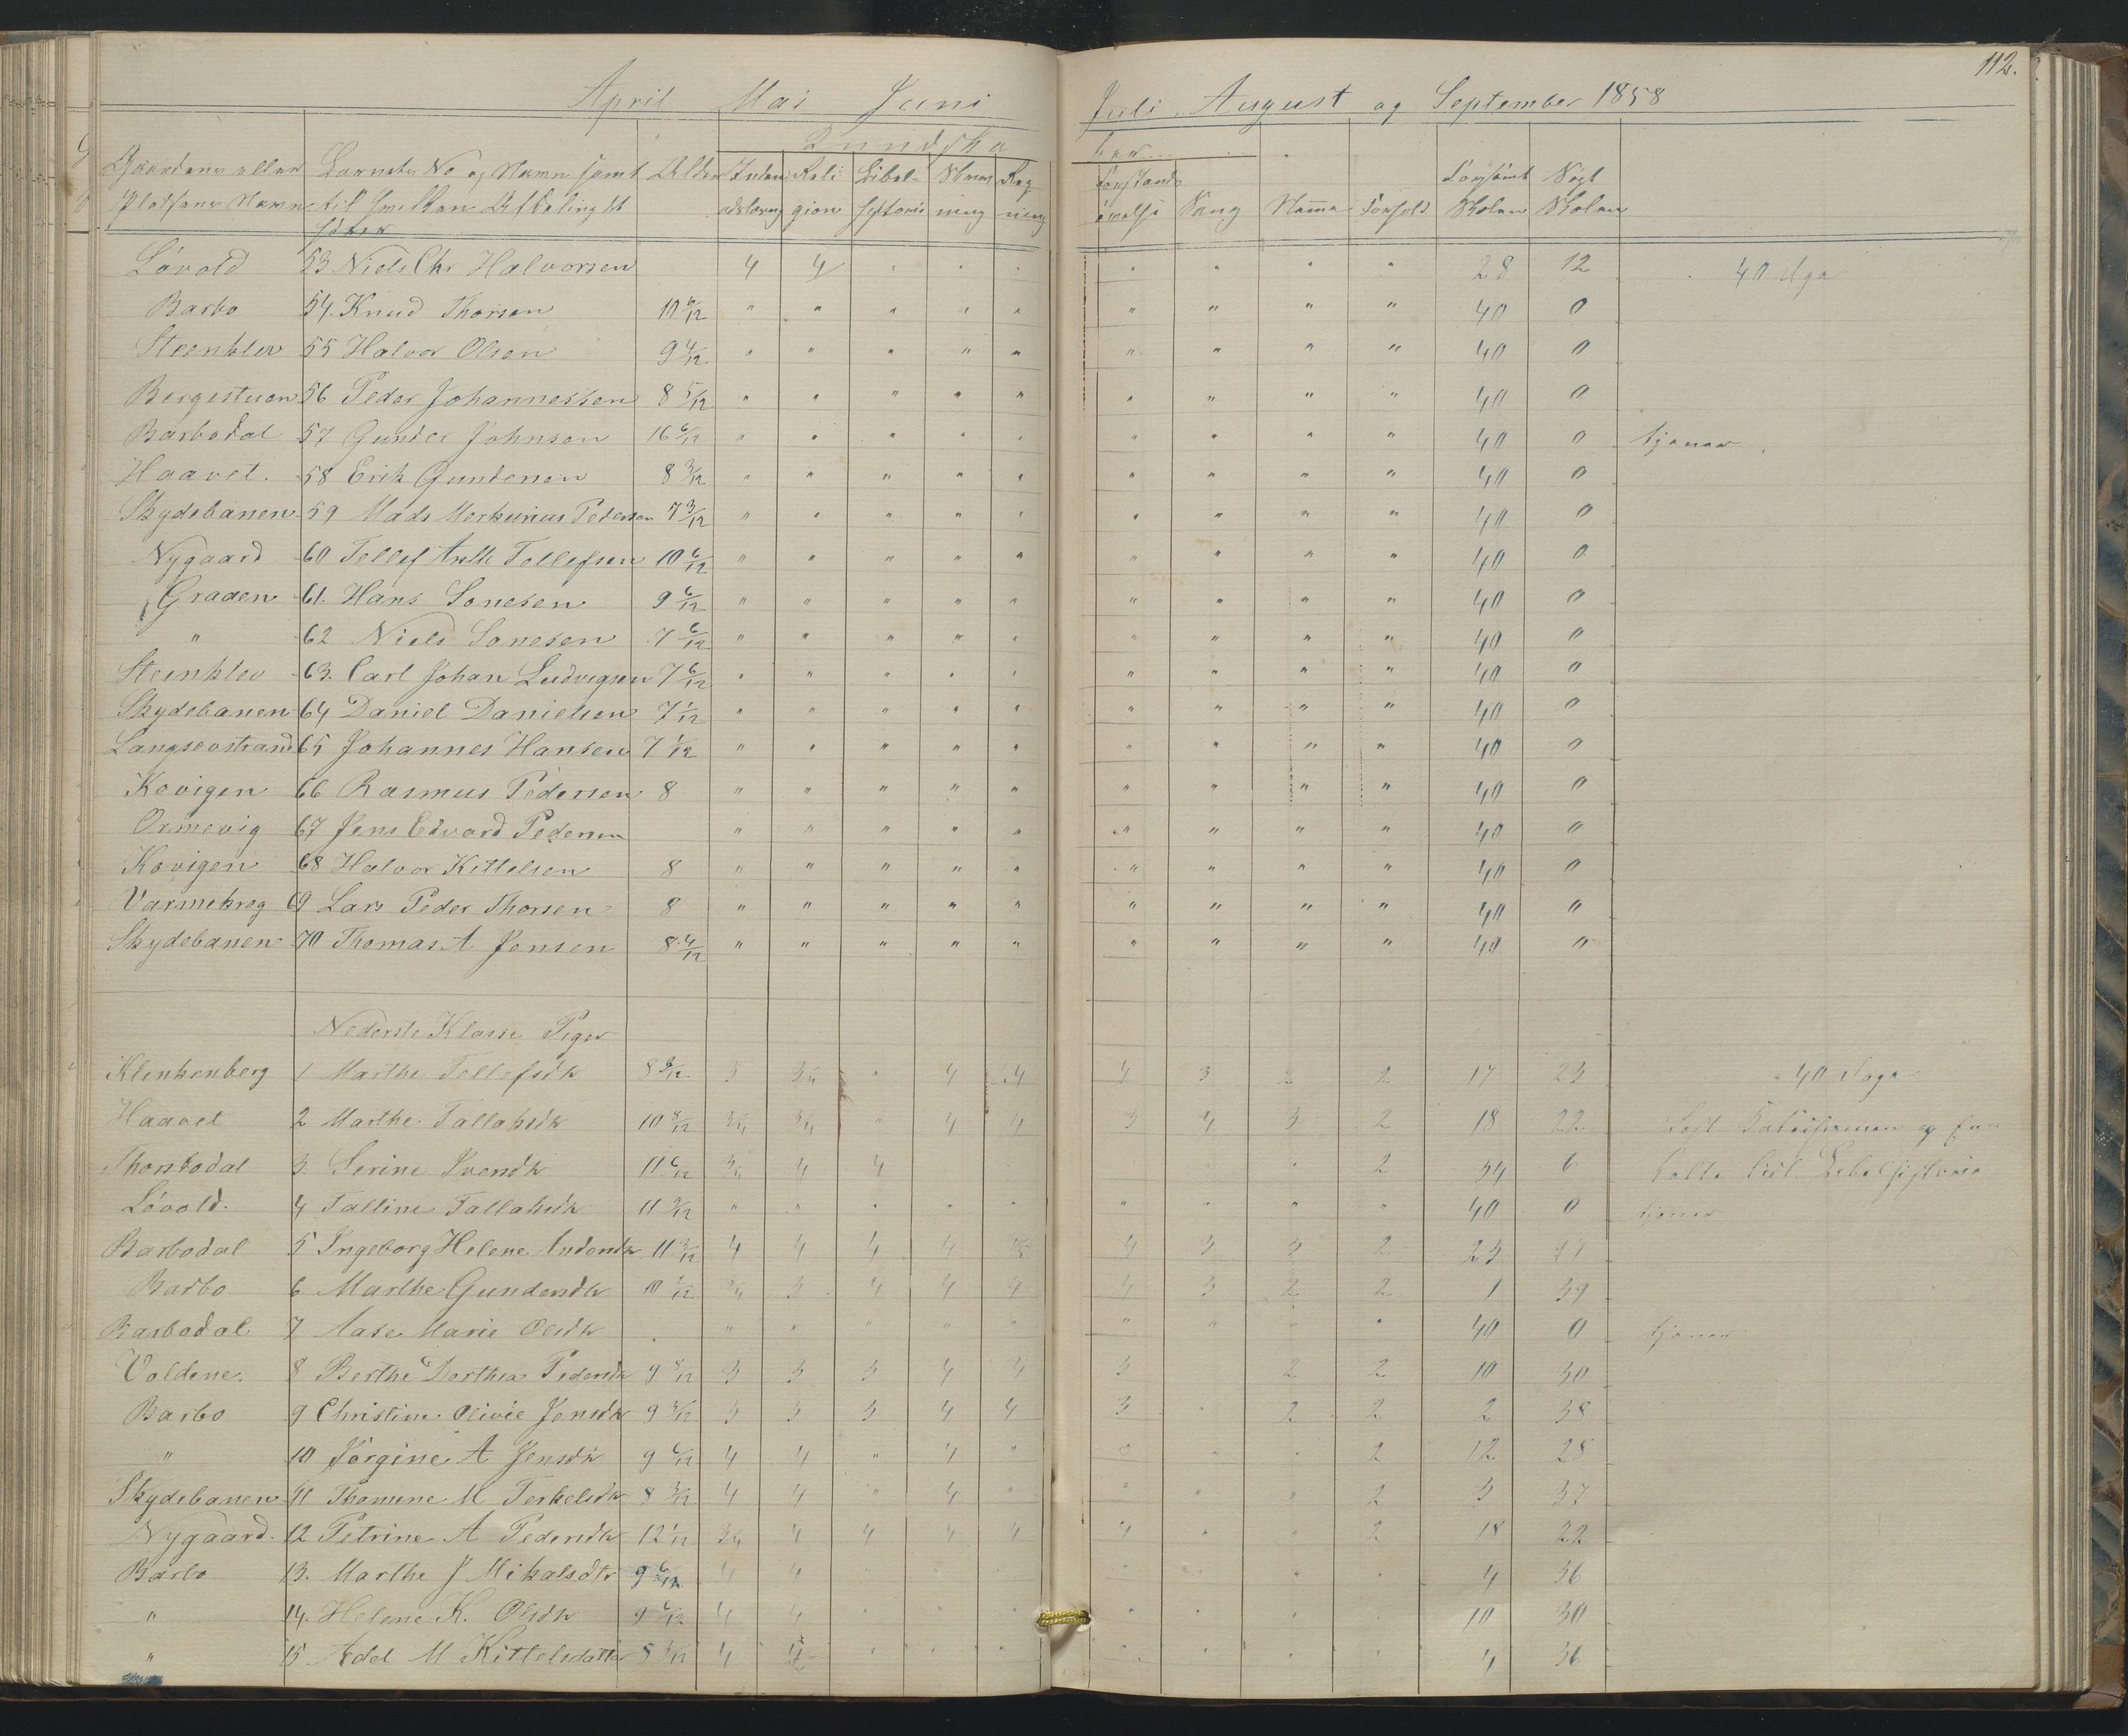 112.
April Mai Juni Juli August og September 1858
Kundska
ber
Gaardens eller Barnets No og Navn samt Alder Inden Reli Bibel- Skriv Reg Forstands Forsömt Sögt
Pladsens Navn til hvilken Afdeling det adslæsn gion historie ning ning övelse Sang Nemme Forhold Skolen Skolen
hörer
Lövold 53 Niels Chr Halvorsen 4 4 " " " " " " " 28 12 40 dage
Barbo 54. Knud Thorsen 10 6/12 " " " " " " " " " 40 0
Steenklev 55 Halvor Olsen 9 4/12 " " " " " " " " " 40 0
Bergestuen 56 Peder Johannessen 8 5/12 " " " " " " " " " 40 0
Barbodal 57 Gunder Johnsen 16 6/12 " " " " " " " " " 40 0 tjener
Haavet. 58 Erik Gundersen 8 3/12 " " " " " " " " " 40 0
Skydebanen 59 Mads Merkurius Pedersen 7 3/12 " " " " " " " " " 40 0
Nygaard 60 Tellef Anth Tollefsen 10 6/12 " " " " " " " " " 40 0
Graaen 61. Hans Sonesen 9 6/12 " " " " " " " " " 40 0
" 62 Niels Sonesen 7 6/12 " " " " " " " " " 40 0
Steenklev 63. Carl Johan Ludvigsen 7 6/12 " " " " " " " " " 40 0
Skydebanen 64 Daniel Danielsen 7 1/12 " " " " " " " " " 40 0
Langseostrand 65 Johannes Hansen 7 1/12 " " " " " " " " " 40 0
Kovigen 66 Rasmus Pedersen 8 " " " " " " " " " 40 0
Ormevig 67 Jens Edvard Pedersen " " " " " " " " " 40 0
Kovigen 68 Halvor Kittelsen 8 " " " " " " " " " 40 0
Varmekrog 69 Lars Peder Thorsen 8 " " " " " " " " " 40 0
Skydebanen 70 Thomas A Jensen 8 4/12 " " " " " " " " " 40 0
Nederste Klasse Piger
Klenkenberg 1 Marthe Tellefsdtr 8 9/12 3 3/4 " 4 4 4 3 2 2 17 23 40 dage
Haavet 2 Marthe Tallaksdtr 10 8/12 3/4 3/4 " 4 4 3 4 3 2 18 22 Læst og
Thorsbodal 3 Serine Svendtr 11 6/12 3/4 4 4 " 2 34 6 Bibelhistorie
Lövold. 4 Talline Tallaksdtr 11 3/12 " " " " " " " " " 40 0 tjener
Barbodal 5 Ingeborg Helene Andersdtr 11 3/12 4 4 4 4 4 3 3 2 23 17
Barbo 6 Marthe Gundersdtr 10 1/12 3/4 3 4 4 4 4 3 2 2 1 39
Barbodal 7 Aase Marie Olsdtr " " " " " " " " " 40 0 tjener
Voldene. 8 Berthe Dorthea Pedersdtr 9 8/12 3 3 3 4 4 3 2 2 10 30
Barbo 9 Christine Olivie Jensdtr 9 3/12 3 3 3 4 4 3 " 2 2 2 38
" 10 Jörgine A Jensdtr 9 6/12 4 4 " 4 " " " " 2 12 28
Skydebanen 11 Thomine M Terkelsdtr 8 3/12 4 4 " 4 " " " " 2 3 37
Nygaard. 12 Petrine A Pedersdtr 12 1/12 3/4 4 4 4 4 4 " " 2 18 22
Barbo 13. Marthe J Mikalsdtr 9 6/12 4 4 " " " " " " " 4 36
" 14. Helene K. Olsdtr 9 6/12 4 4 " " " " " " 10 30
" 15 Adel M Kittelsdatter 8 3/12 4 4 " " " " " " " 4 36